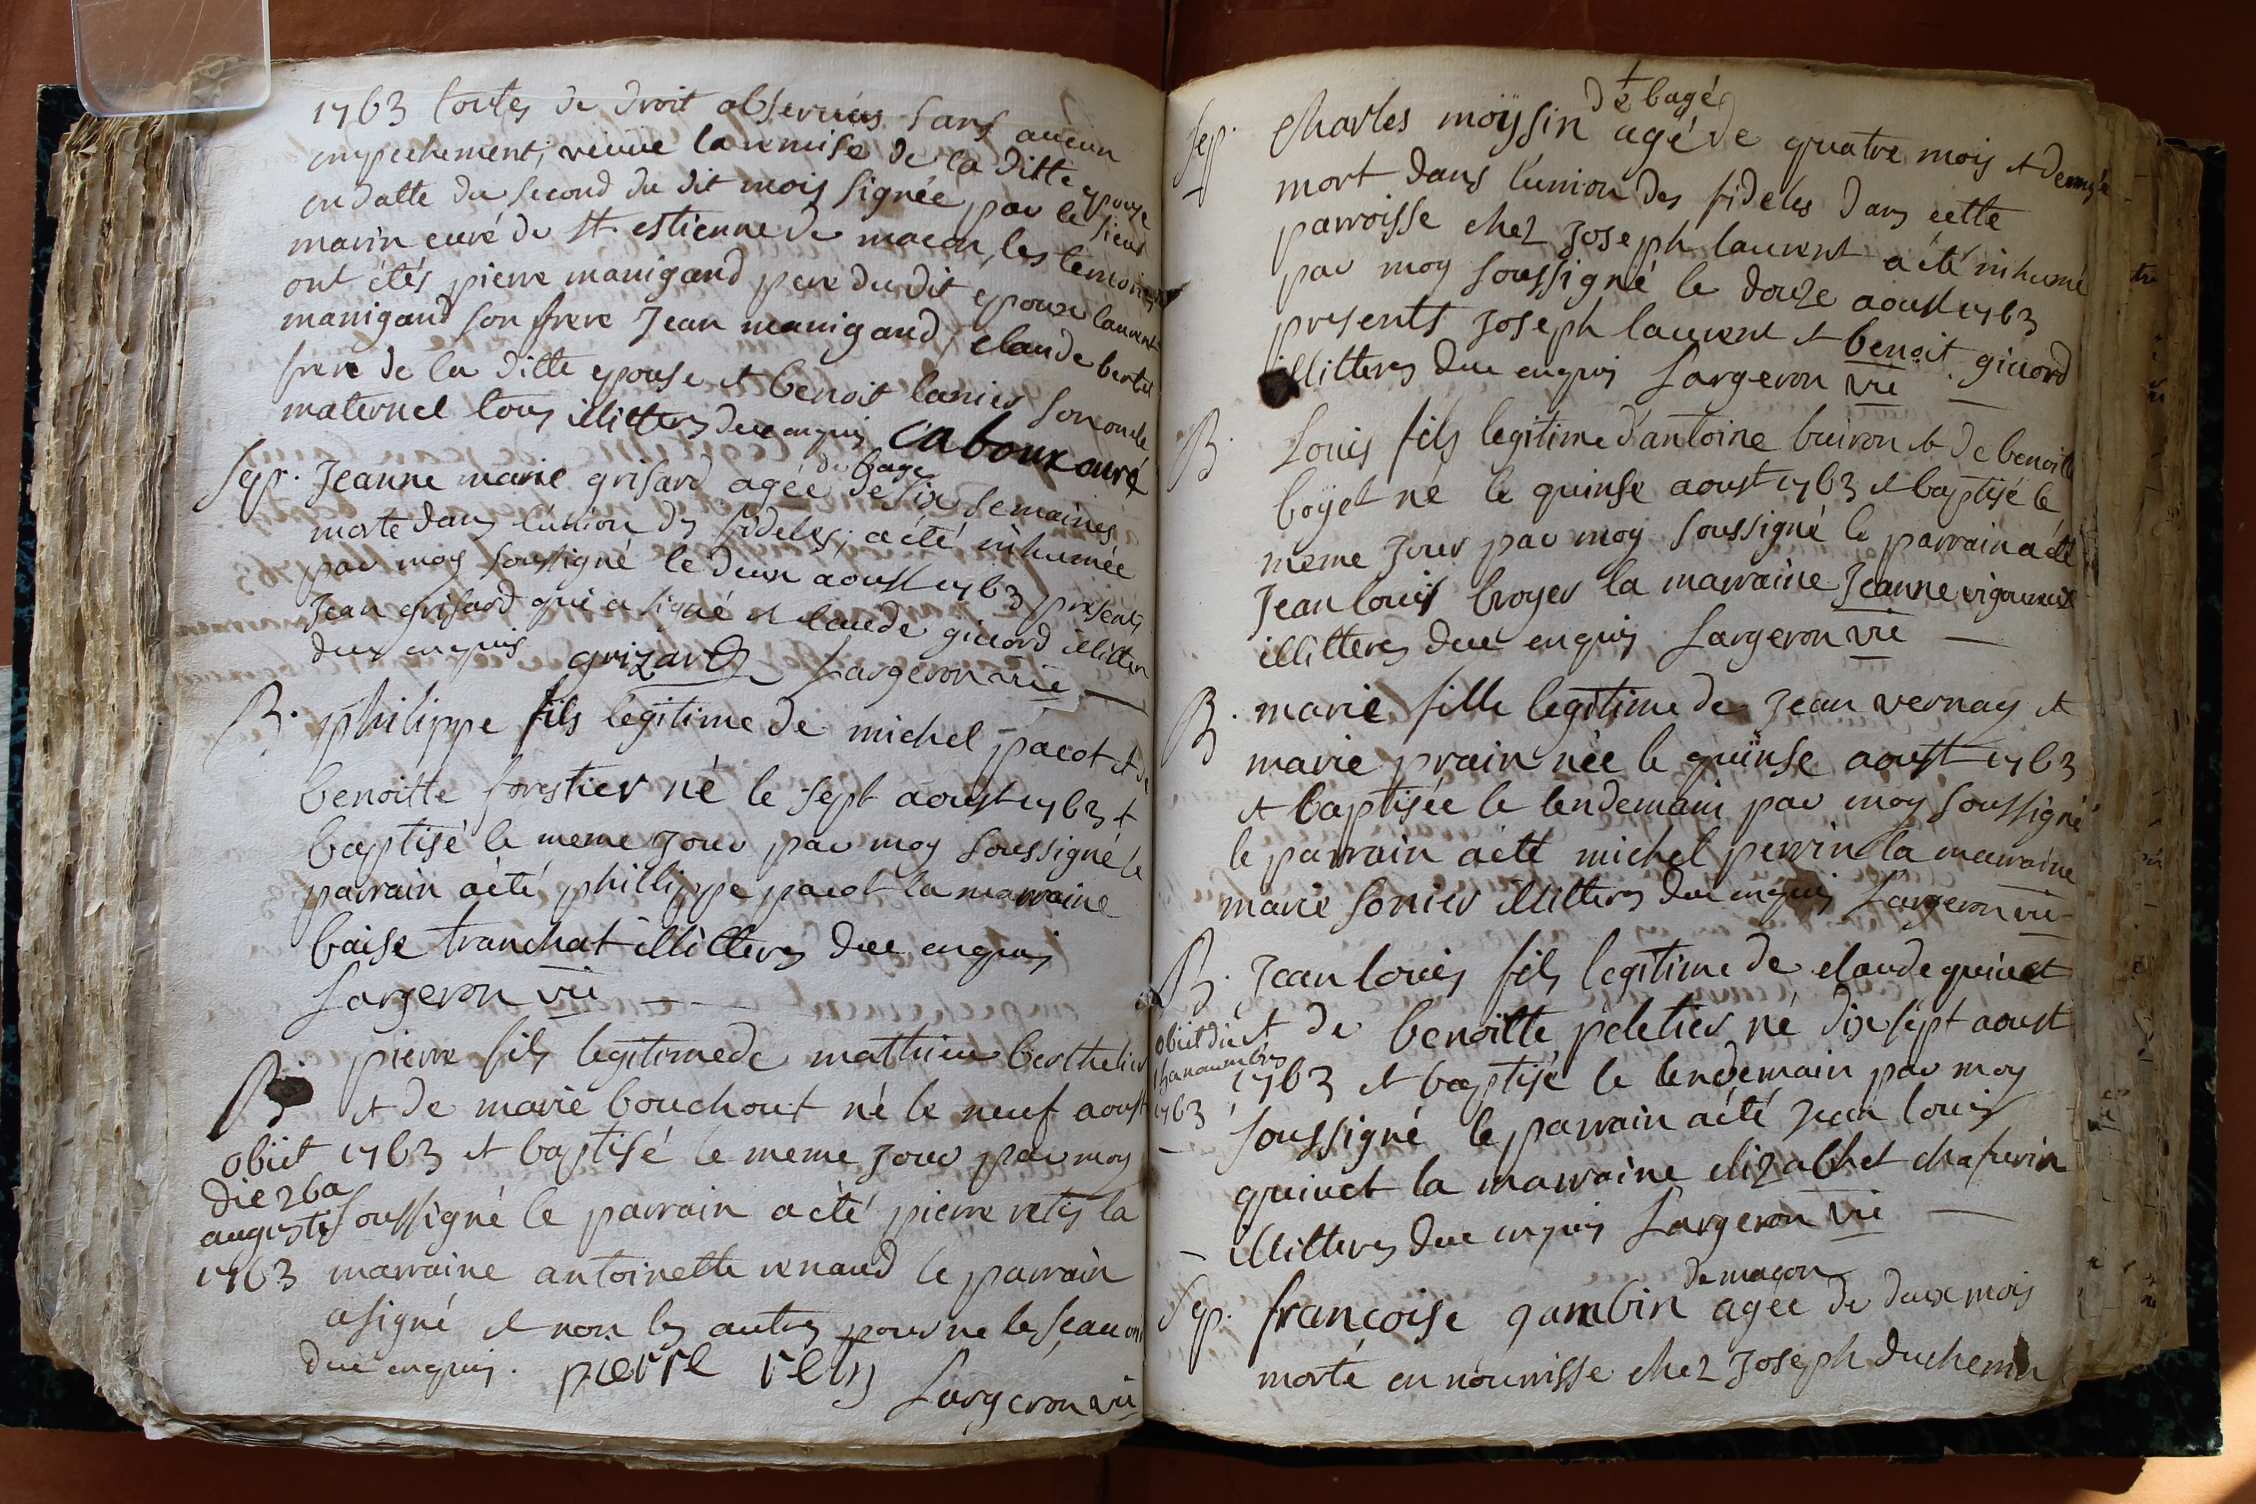 1763 toutes de droit observées sans aucun
empechement, veüe la remise de la ditte epouse
en datte du second du dit mois signée par le sieur
marin curé de St estienne de macon, les temoins
ont étés pierre manigand pere du dit epoux laurent
manigand son frere Jean manigand, claude bertet
frere de la ditte epouse et benoit lanier son oncle
maternel tous illitteres due enquis Caboux curé
Sep. Jeanne marie grisard de bagé agée de six semaines
morte dans l'union des fideles, a été inhumée
par moy soussigné le deux aoust 1763 presents
Jean grisard qui a signé et claude givord illittere
due enquis grizard Largeron vic
B. philippe fils legitime de michel pacot et de
benoitte forestier né le sept aoust 1763 et
baptisé le meme jour par moy soussigné le
parrain a été phillippe pacot la marraine
baise tranchat illitteres due enquis
Largeron vic
B. pierre fils legitime de mathieu berthelier
et de marie bouchout né le neuf aoust
obiit 1763 et baptisé le meme jour par moy
die 26a
augusti soussigné le parrain a été pierre retis la
1763 marraine antoinette renaud le parrain
a signé et non les autres pour ne le scavoir
due enquis. pierre retis
Largeron vic
de bagé
Sep. Charles moÿsin agé de quatre mois et demy
mort dans l'union des fideles dans cette
parroisse chez Joseph laurent a été inhumé
par moy soussigné le douze aoust 1763
presents Joseph laurent et benoit givord
illitteres due enquis Largeron vic
B. Louis fils legitime d'antoine buiron et de benoitte
boÿet né le quinse aoust 1763 et baptisé le
meme jour par moy soussigné le parrain a été
Jean louis broyer la marraine Jeanne
illitteres due enquis Largeron vic
B. marie fille legitime de Jean vernay et
marie prain née le quinse aoust 1763
et baptisée le lendemain par moy soussigné
le parrain a été michel perrin la marraine
marie sonier illitteres due enquis Largeron vic
B. Jean louis fils legitime de claude quinet
obiit die et de benoitte peletier né dix sept aoust
novembris 1763 et baptisé le lendemain par moy
1763 soussigné le parrain a été Jean louis
quinet la marraine elizabhet chapuin
illitteres due enquis Largeron vic
de macon
Sep. françoise gambin agée de deux mois
morte en nourrisse chez Joseph duchemin